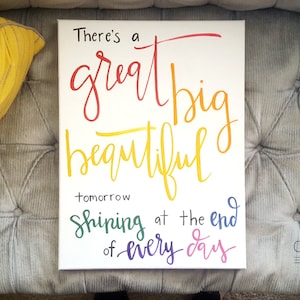 There's a
great
big
beautiful
tomorrow
shining at the end
of every day